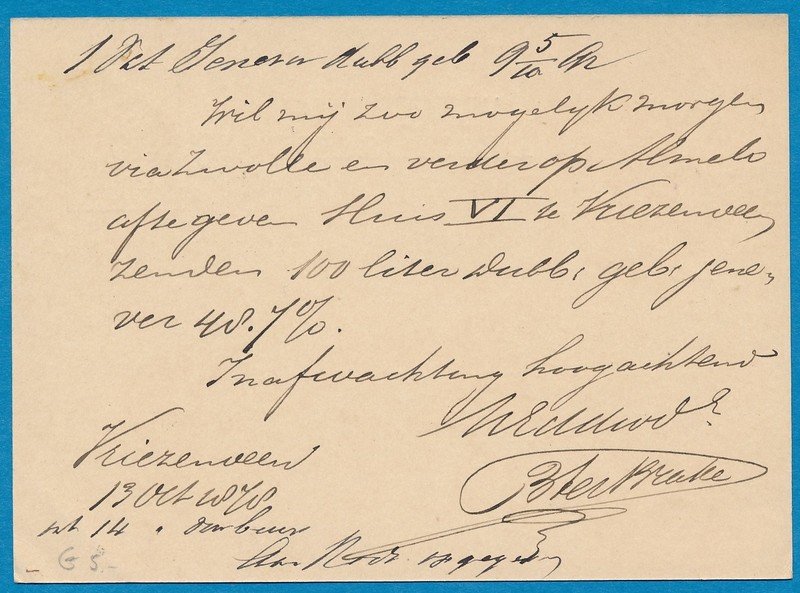 1 Vat Genever dubb geb 9 5/10
Wil mij zoo mogelyk morgen
via Zwolle en verder op Almelo
afte geven Huis VI te Vriezenveen
zenden 100 liter dubb: geb: jene-
ver 48.7%.
In afwachting hoogachtend
UEd dwd
Vriezenveen
13 Oct 1878
14
Aan opgegeven
G 5.-